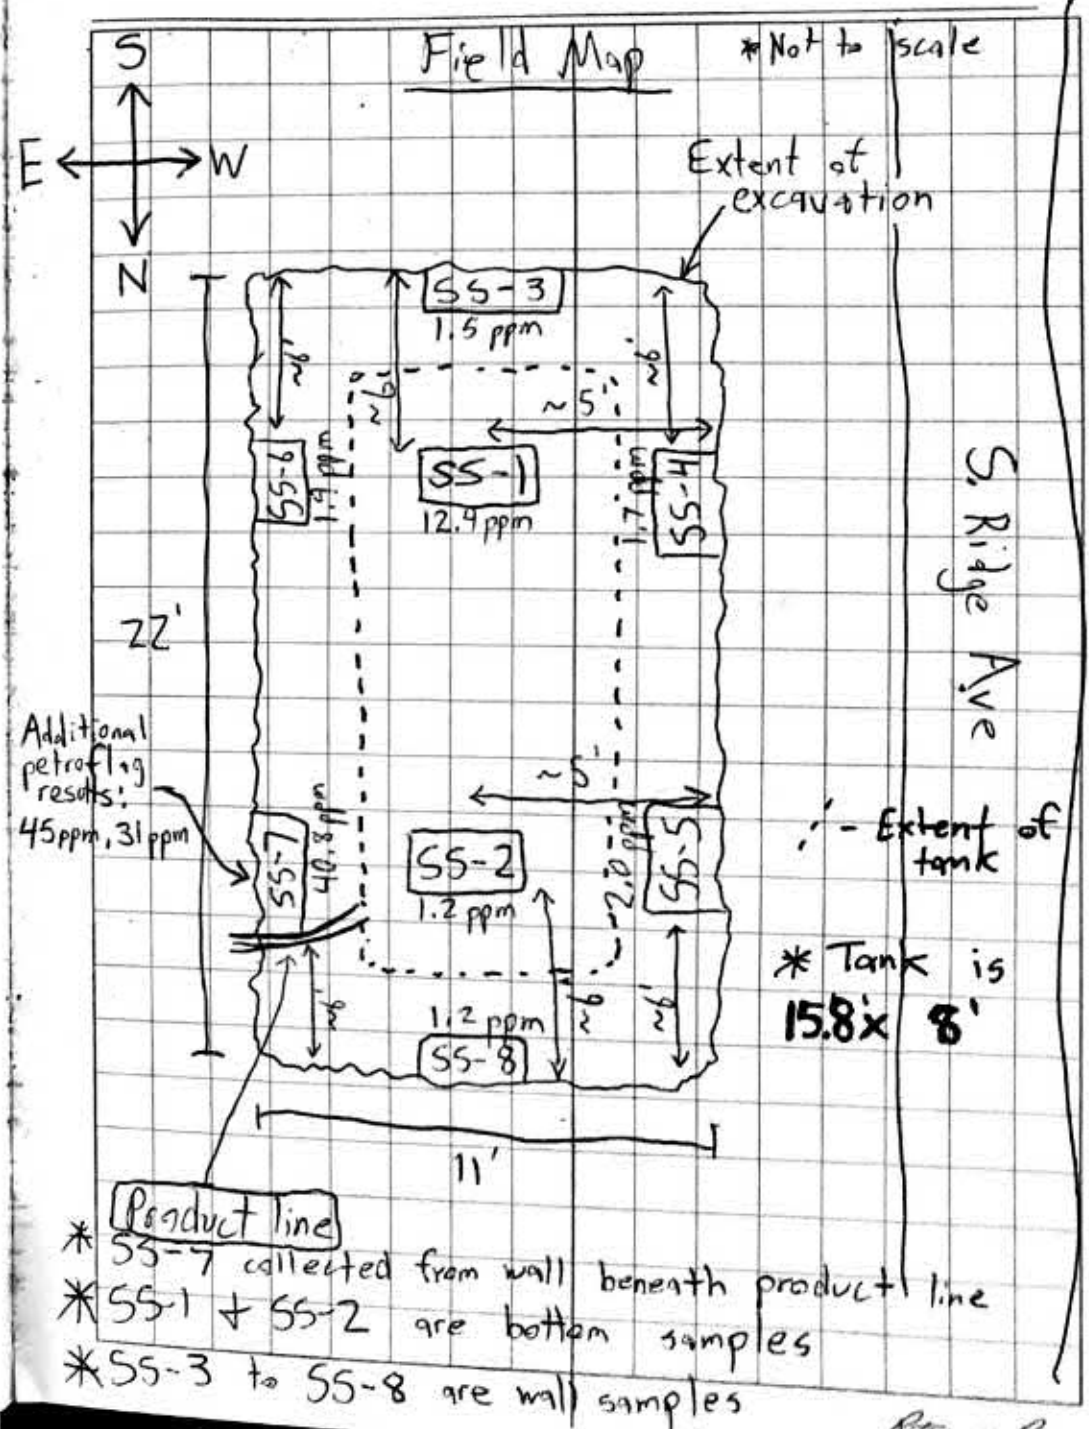 S
Field Map
*Not to scale
E
W
N
Extent of
excavation
SS-3
1.5 ppm
~6'
~6'
~6'
~5'
SS-6
1.9 ppm
SS-1
12.4 ppm
1.7 ppm
SS-4
S. Ridge Ave
22'
Additional
petroflag
results:
45ppm, 31ppm
~5'
SS-7
40.8 ppm
SS-2
1.2 ppm
2.0 ppm
SS-5
- Extent of
tank
* Tank is
15.8' x 8'
~6'
1.2 ppm
SS-8
~6'
~6'
11'
Product line
* SS-7 collected from wall beneath product line
* SS-1 + SS-2 are bottom samples
* SS-3 to SS-8 are wall samples